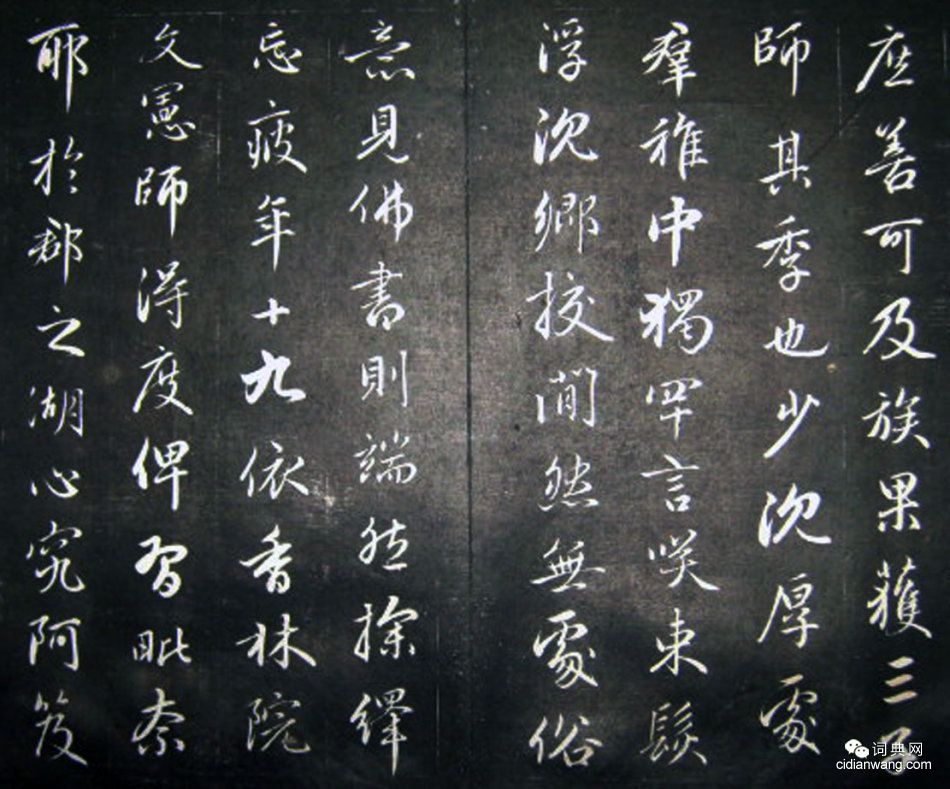 庶善可及族果獲三子
師其季也少沈厚處
羣稚中獨罕言咲束髮
浮沈鄉挍簡然無處俗
意見佛書則端然探繹
忘疲年十九依香林院
文憲師得度俾習毗奈
耶於郡之湖心究阿笈
词典网
cidianwang.com